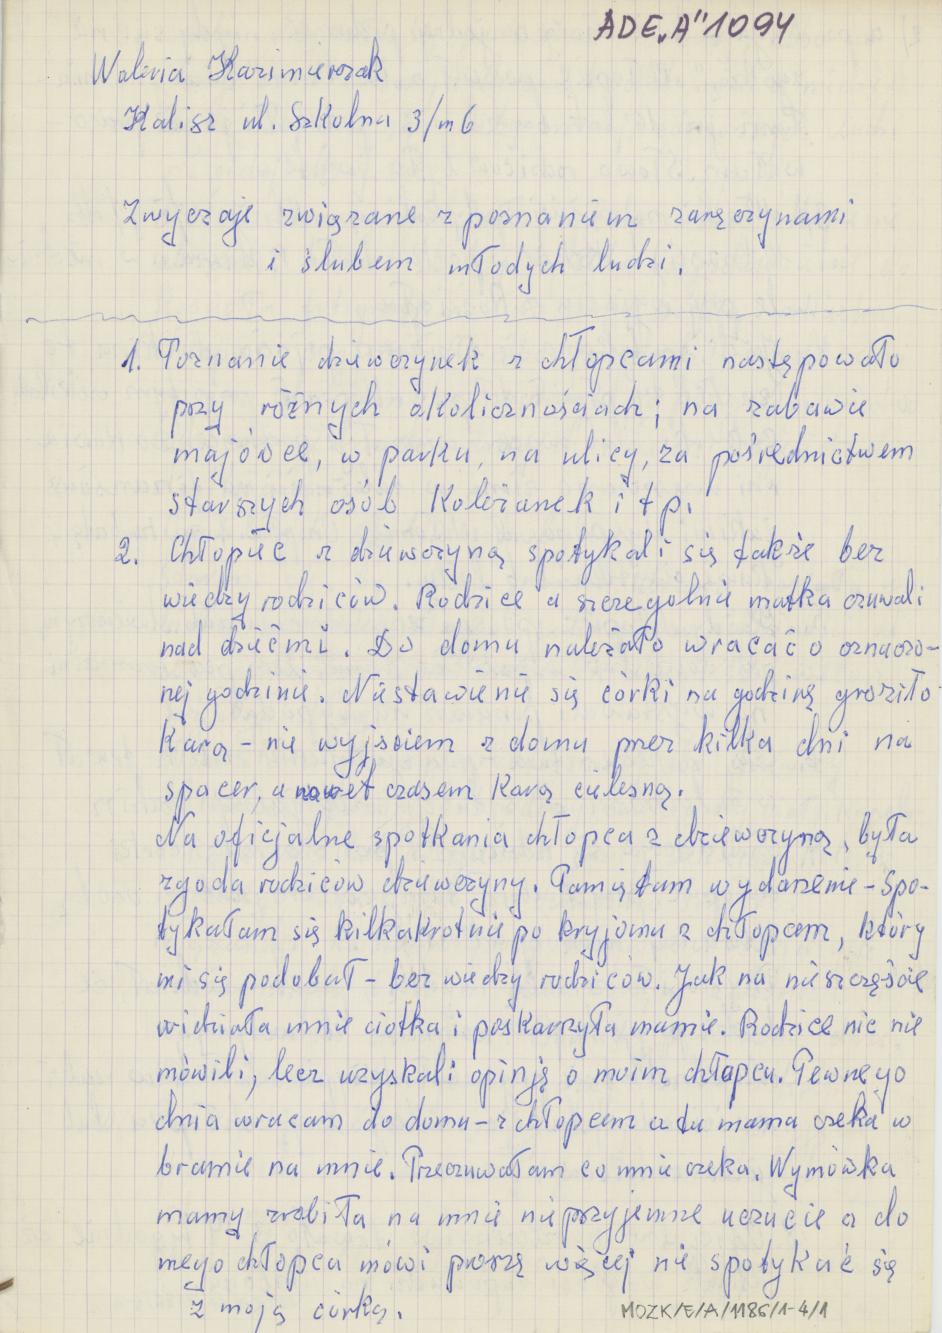 ADE„A"1094
Waleria Kazimierczak
Kalisz ul. Szkolna 3/m6
Zwyczaje związane z poznaniem zaręczynami
i ślubem młodych ludzi.
1. Poznanie dziewczynek z chłopcami następowało
przy różnych okolicznościach; na zabawie
majówce, w parku, na ulicy, za pośrednictwem
starszych osób koleżanek i t p.
2. Chłopiec z dziewczyną spotykali się także bez
wiedzy rodziców. Rodzice a szczególnie matka czuwali
nad dziećmi. Do domu należało wracać o oznaczo-
nej godzinie. Niestawienie się córki na godzinę groziło
karą – nie wyjściem z domu przez kilka dni na
spacer, a nawet czasem karą cielesną.
Na oficjalne spotkania chłopca z dziewczyną, była
zgoda rodziców dziewczyny. Pamiętam wydarzenie – Spo-
tykałam się kilkakrotnie po kryjomu z chłopcem, który
mi się podobał – bez wiedzy rodziców. Jak na nieszczęście
widziała mnie ciotka i poskarżyła mamie. Rodzice nic nie
mówili, lecz uzyskali opinję o moim chłopcu. Pewnego
dnia wracam do domu – z chłopcem a tu mama czeka w
bramie na mnie. Przeczuwałam co mnie czeka. Wymówka
mamy zrobiła na mnie nieprzyjemne uczucie a do
mego chłopca mówi proszę więcej nie spotykać się
z moją córką.
MOZK/E/A/1186/1-4/1